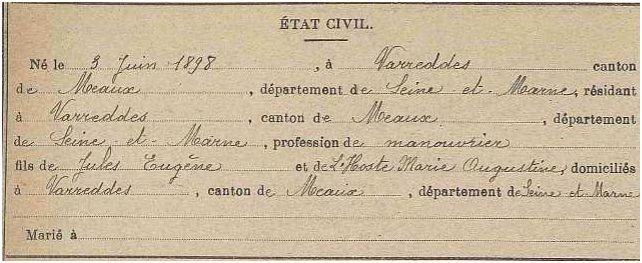 ÉTAT CIVIL.
Né le 3 Juin 1898, à Varreddes canton
de Meaux, département de Seine-et-Marne, résidant
à Varreddes, canton de Meaux, département
de Seine-et-Marne, profession de manouvrier
fils de Jules Eugène et de L'Hoste Marie Augustine, domiciliés
à Varreddes, canton de Meaux, département de Seine et Marne
Marié à